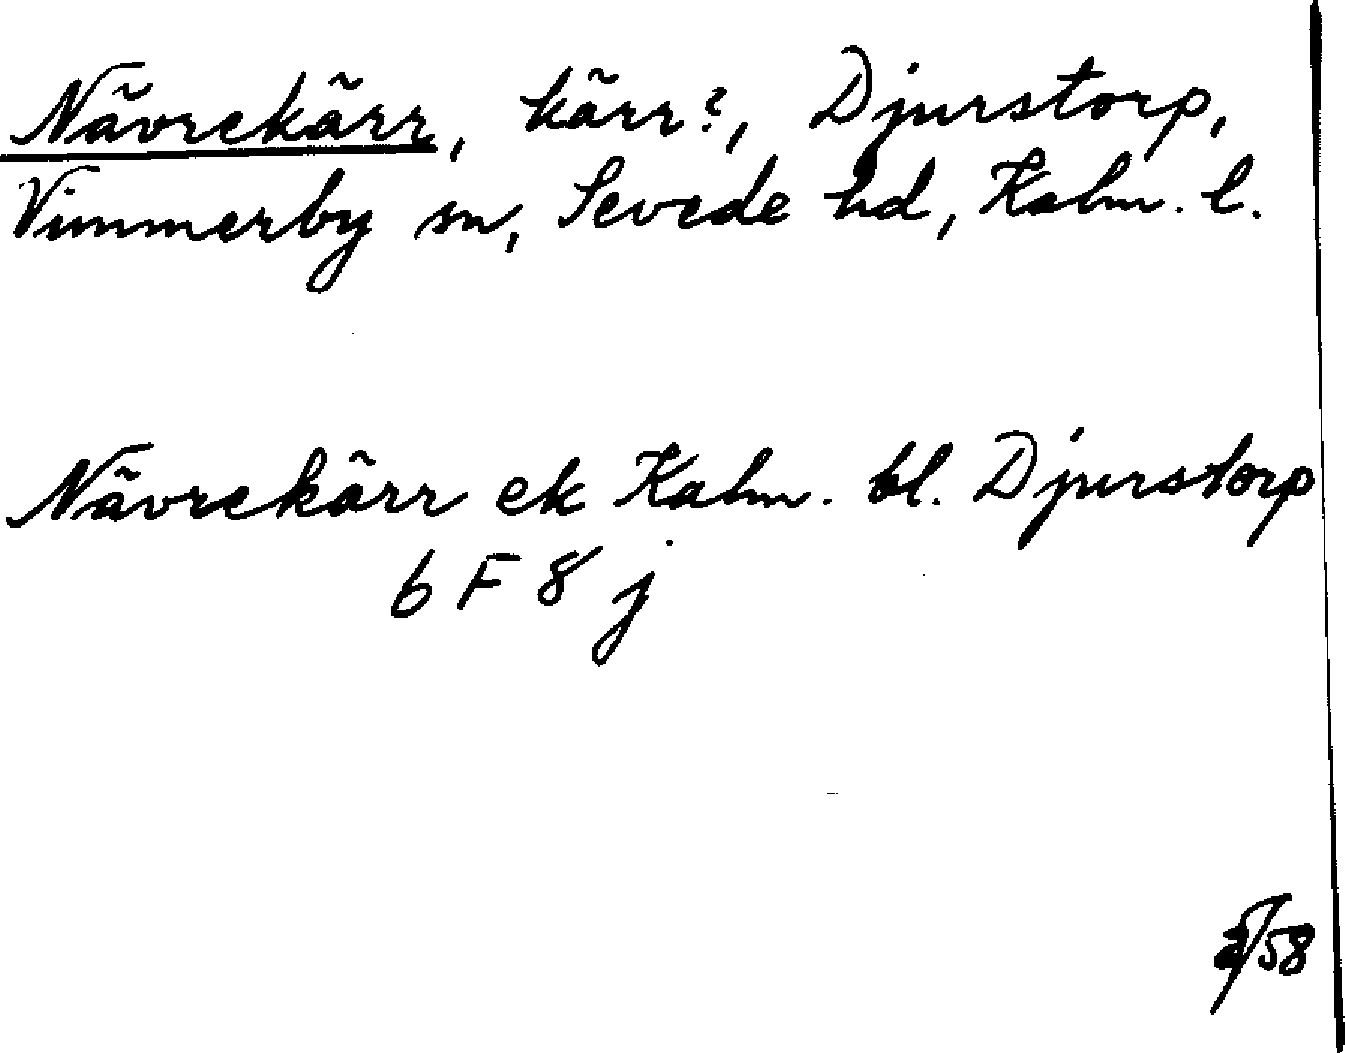 Nävrekärr, kärr?, Djurstorp,
Vimmerby sn, Sevede hd, Kalm. l.
Nävrekärr ek Kalm. bl. Djurstorp
6 F 8 j
/58